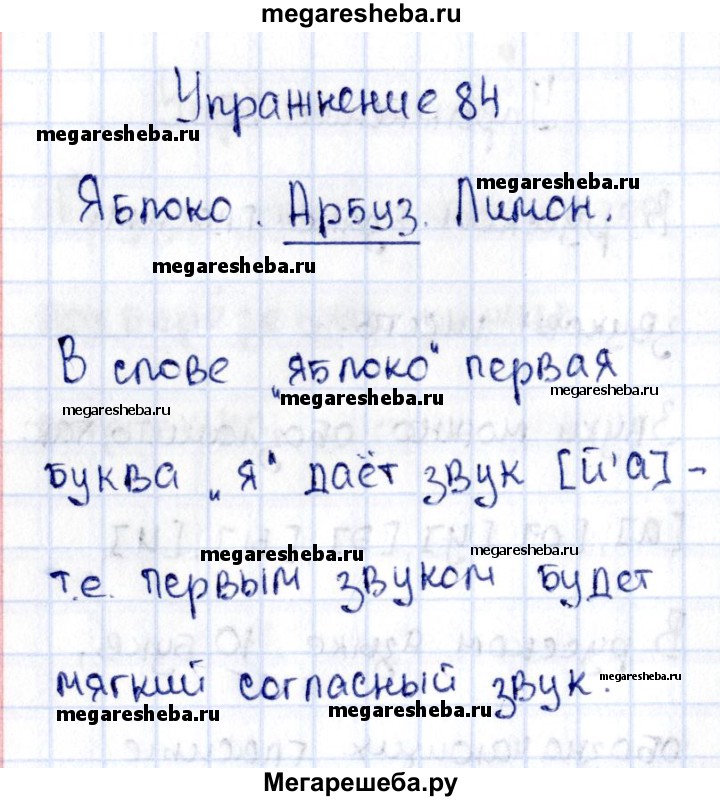 megaresheba.ru
Упражнение 84
megaresheba.ru
megaresheba.ru
Яблоко. Арбуз. Лимон.
megaresheba.ru
В слове "яблоко" первая
megaresheba.ru
megaresheba.ru
megaresheba.ru
буква „я“ даёт звук [й'а] -
megaresheba.ru
megaresheba.ru
т.е. первым звуком будет
мягкий согласный звук.
megaresheba.ru
megaresheba.ru
megaresheba.ru
Мегарешеба.ру